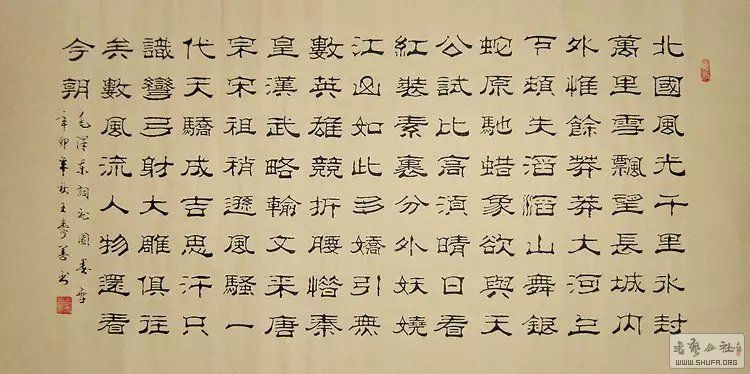 北國風光千里冰封
萬里雪飄望長城内
外惟餘莽莽大河上
下頓失滔滔山舞銀
蛇原馳蜡象欲與天
公試比高湏晴日看
紅裝素裹分外妖嬈
江山如此多嬌引無
數英雄競折腰惜秦
皇漢武略輸文采唐
宗宋祖稍遜風騷一
代天驕成吉思汗只
識彎弓射大雕俱往
矣數風流人物還看
今朝
毛澤東詞沁園春雪
辛卯年秋王善書
WWW.SHUFA.ORG